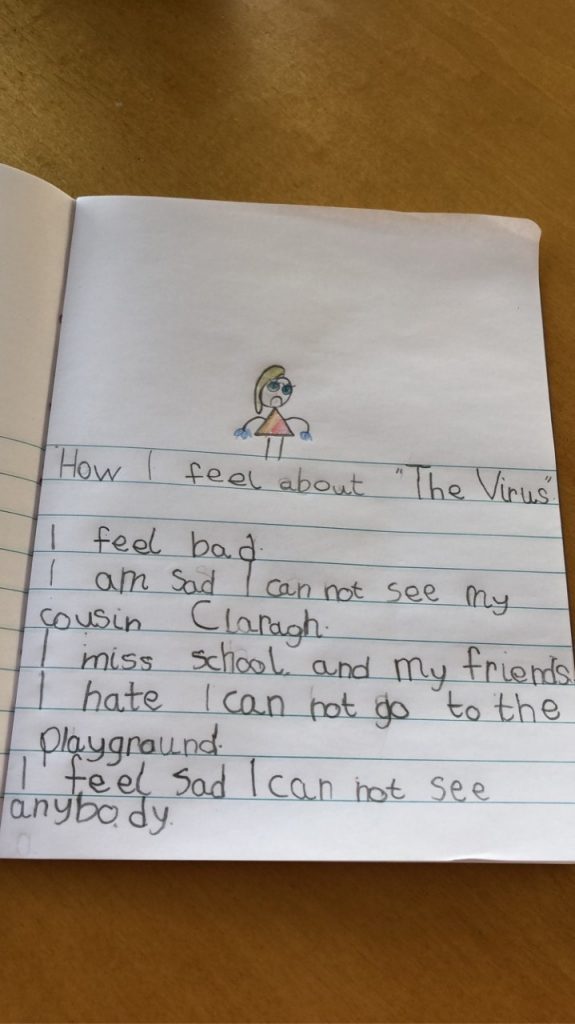 How I feel about "The Virus"
I feel bad.
I am sad I can not see my
cousin Claragh.
I miss school. and my friends
I hate I can not go to the
playground.
I feel sad I can not see
anybody.